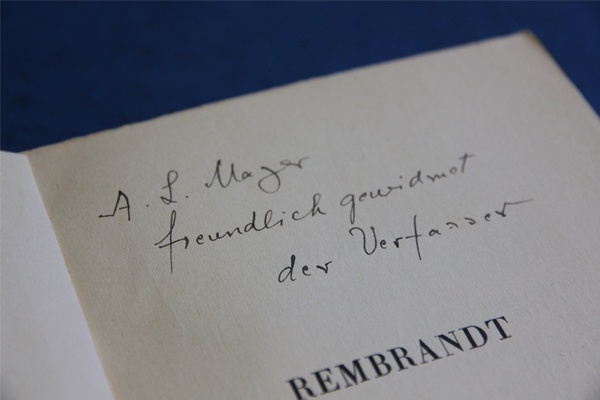 A. L. Mayer
freundlich gewidmet
der Verfasser
REMBRANDT